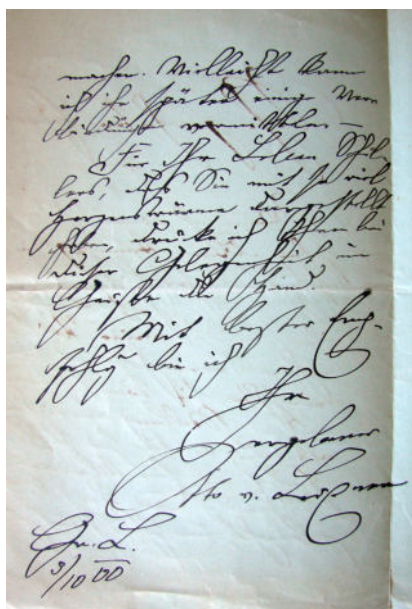 machen. Vielleicht kann
ich ihr später einige Vor
theile vermitteln. —
Für Ihr Leben Schil-
lers, das Sie mit so viel
Herzenswärme dargestellt
haben, drücke ich Ihnen bei
dieser Gelegenheit im
Geiste die Hand.
Mit bester Emp-
fehlg bin ich
Ihr
ergebener
Otto v. Leixner
Gr. L.
9/10 00